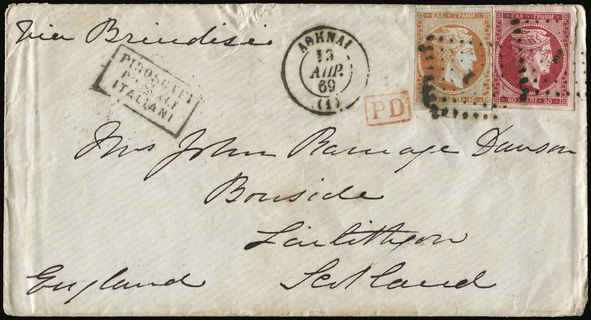 Via Brindisi
PIROSCAFI
POSTALI
ITALIANI
ΑΘΗΝΑΙ
ΑΠΡ.
69
(1)
PD
ΕΛΛ. ΓΡΑΜΜ.
ΕΛΛ. ΓΡΑΜΜ.
80 ΛΕΠ. 80
Mrs John Ramage Dawson
Bonside
Linlithgow
England Scotland